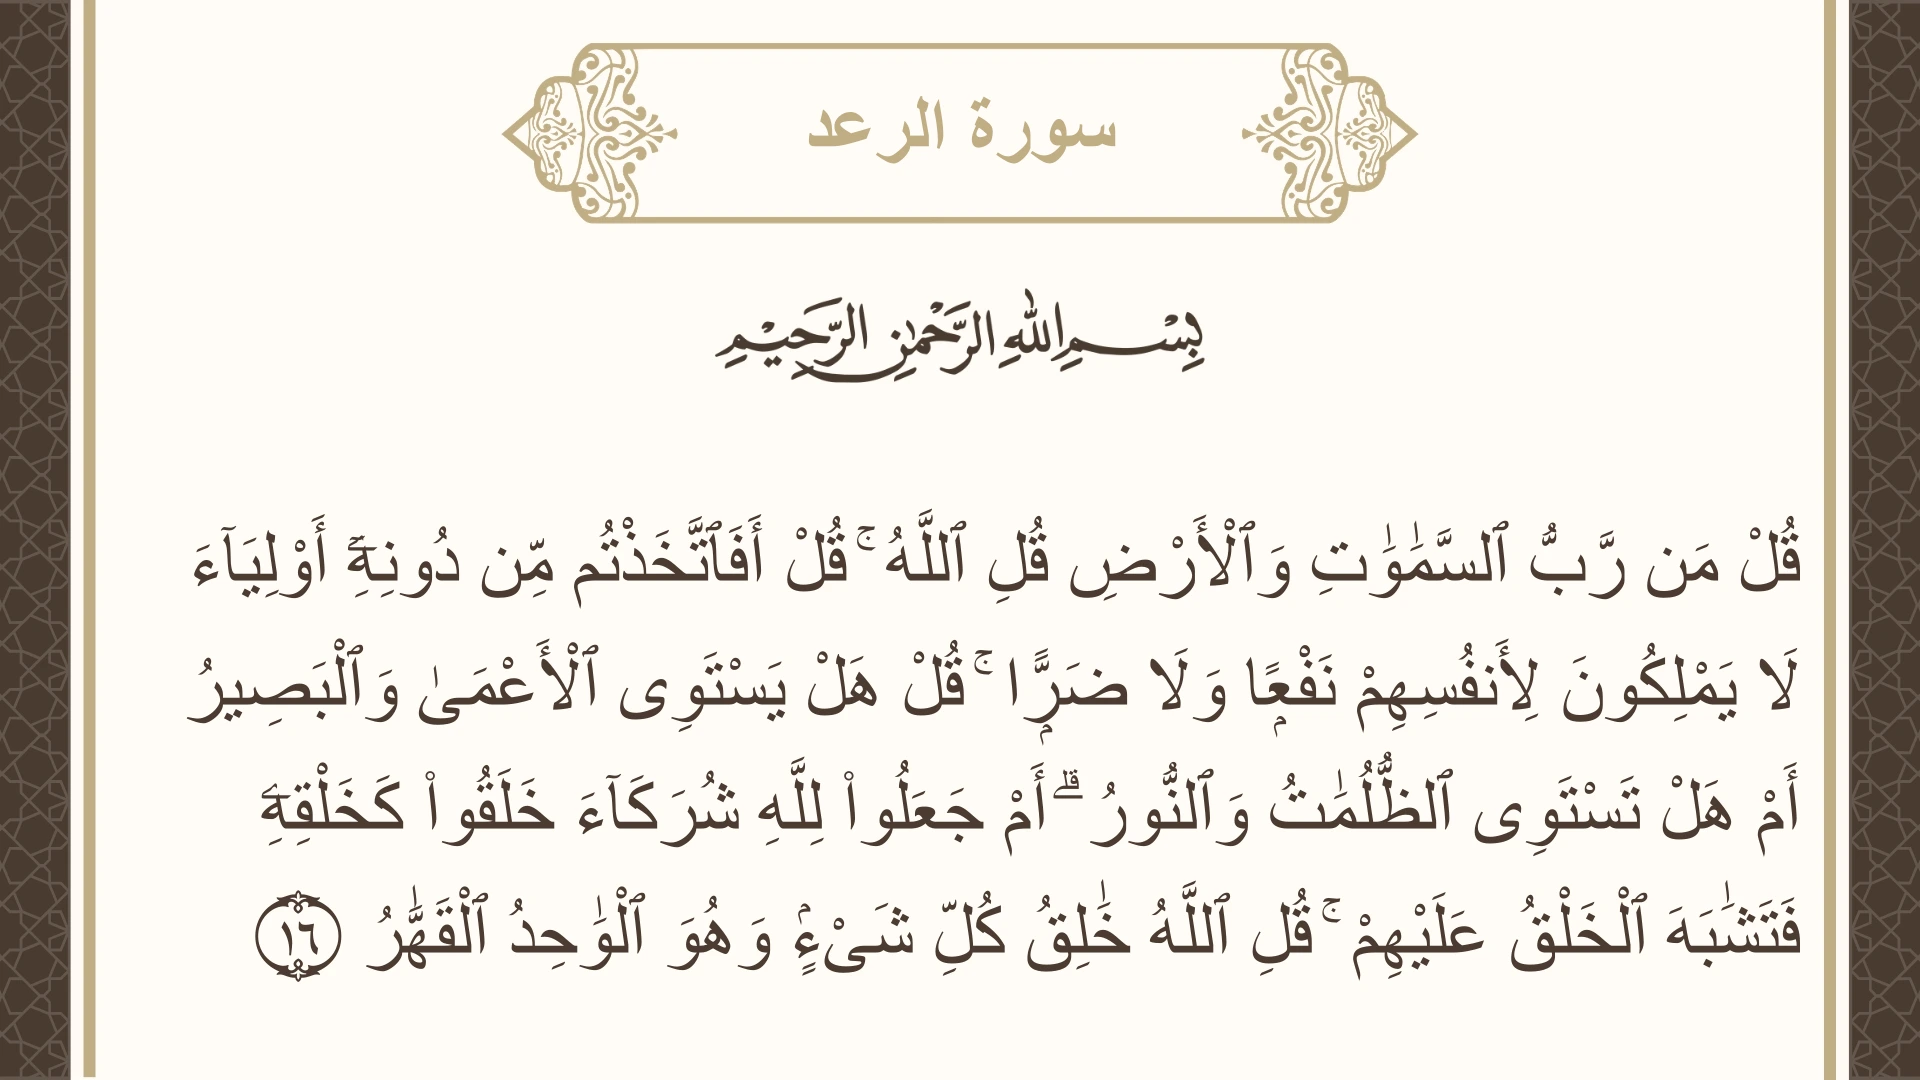 سورة الرعد
بِسْمِ اللهِ الرَّحْمٰنِ الرَّحِيْمِ
قُلْ مَن رَّبُّ ٱلسَّمَـٰوَٰتِ وَٱلْأَرْضِ قُلِ ٱللَّهُ ۚ قُلْ أَفَٱتَّخَذْتُم مِّن دُونِهِۦٓ أَوْلِيَآءَ
لَا يَمْلِكُونَ لِأَنفُسِهِمْ نَفْعًۭا وَلَا ضَرًّۭا ۚ قُلْ هَلْ يَسْتَوِى ٱلْأَعْمَىٰ وَٱلْبَصِيرُ
أَمْ هَلْ تَسْتَوِى ٱلظُّلُمَـٰتُ وَٱلنُّورُ ۗ أَمْ جَعَلُوا۟ لِلَّهِ شُرَكَآءَ خَلَقُوا۟ كَخَلْقِهِۦ
فَتَشَـٰبَهَ ٱلْخَلْقُ عَلَيْهِمْ ۚ قُلِ ٱللَّهُ خَـٰلِقُ كُلِّ شَىْءٍۢ وَهُوَ ٱلْوَٰحِدُ ٱلْقَهَّـٰرُ ١٦